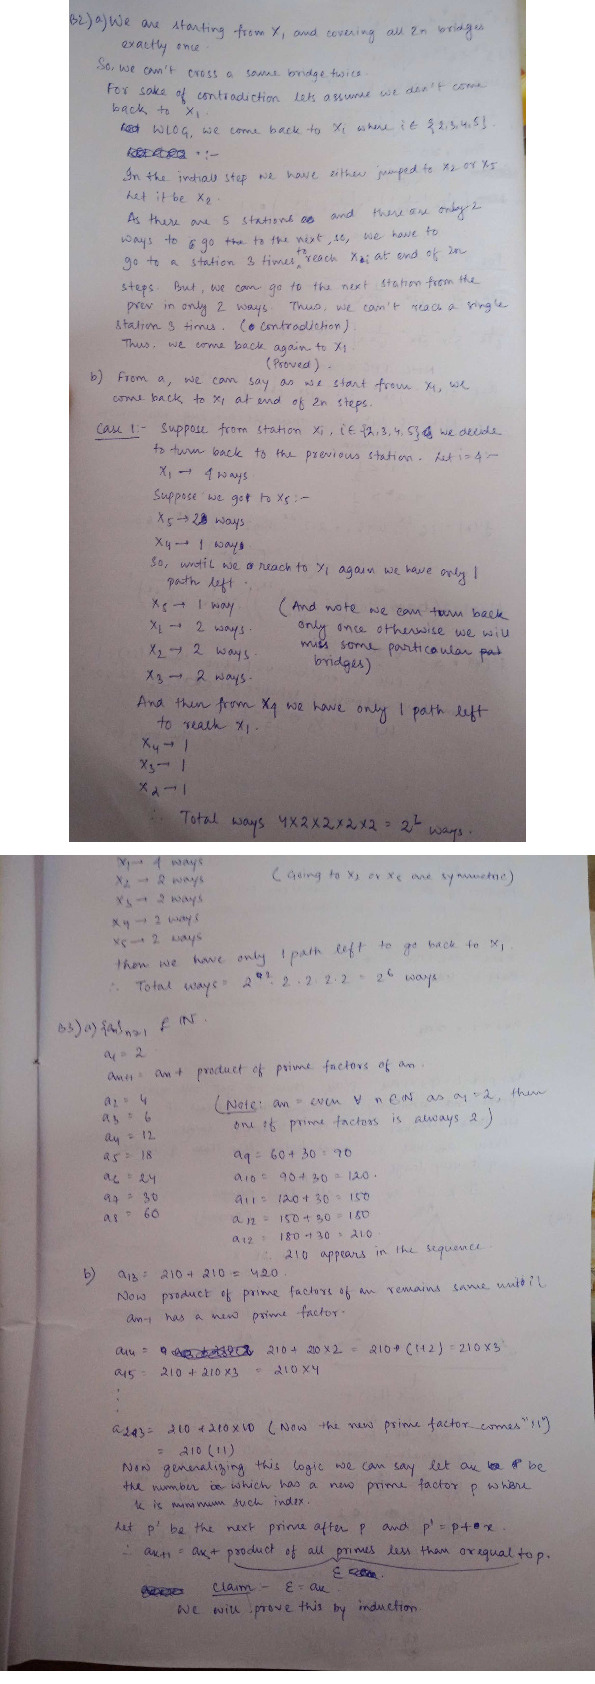 B2) a) We are starting from X1 and covering all 2n bridges
exactly once.
So, we can't cross a same bridge twice.
For sake of contradiction lets assume we don't come
back to X1.
WLOG, we come back to Xi where i ∈ {2,3,4,5}.
:-
In the initiall step we have either jumped to X2 or X5
Let it be X2.
As there are 5 stations and there are only 2
ways to go the to the next, so, we have to
go to a station 3 times to reach Xi at end of 2n
steps. But, we can go to the next station from the
prev in only 2 ways. Thus, we can't reach a single
station 3 times. (contradiction)
Thus. we come back again to X1
(Proved).
b) From a, we can say as we start from X1, we
come back to X1 at end of 2n steps.
Case 1:- Suppose from station Xi, i ∈ {2,3,4,5} we decide
to turn back to the previous station. Let i=4:-
X1 → 4 ways
Suppose we got to X5:-
X5 → 2 ways
X4 → 1 ways
So, until we reach to X1 again we have only 1
path left.
X5 → 1 way (And note we can turn back
X1 → 2 ways. only once otherwise we will
X2 → 2 ways. miss some particular
X3 → 2 ways. bridges)
And then from X4 we have only 1 path left
to reach X1.
X4 → 1
X3 → 1
X2 → 1
∴ Total ways 4×2×2×2×2 = 2 ways.
X1 → 4 ways
X2 → 2 ways (Going to X2 or X5 are symmetric)
X3 → 2 ways
X4 → 2 ways
X5 → 2 ways
then we have only 1 path left to go back to X1.
∴ Total ways = 2^2. 2. 2. 2. 2 = 2^6 ways
B3) a) {an}n≥1 ∈ IN.
a1 = 2
an+1 = an + product of prime factors of an.
a2 = 4 (Note: an = even ∀ n ∈ N as a1 = 2, then
a3 = 6 one of prime factors is always 2.)
a4 = 12
a5 = 18 a9 = 60 + 30 = 90
a6 = 24 a10 = 90 + 30 = 120.
a7 = 30 a11 = 120 + 30 = 150
a8 = 60 a12 = 150 + 30 = 180
a12 = 180 + 30 = 210.
∴ 210 appears in the sequence
b) a13 = 210 + 210 = 420.
Now product of prime factors of an remains same until
an-1 has a new prime factor.
a14 = 210 + 210 × 2 = 210 (1+2) = 210 × 3
a15 = 210 + 210 × 3 = 210 × 4
:
:
= 210 + 210 × 10 (Now the new prime factor comes "11")
= 210 (11)
Now generalizing this logic we can say let ak be
the number in which has a new prime factor p where
k is minimum such index.
Let p' be the next prime after p and p' = p + x.
∴ ak+1 = ak + product of all primes less than or equal to p.
ε
Claim - ε = ak
We will prove this by induction